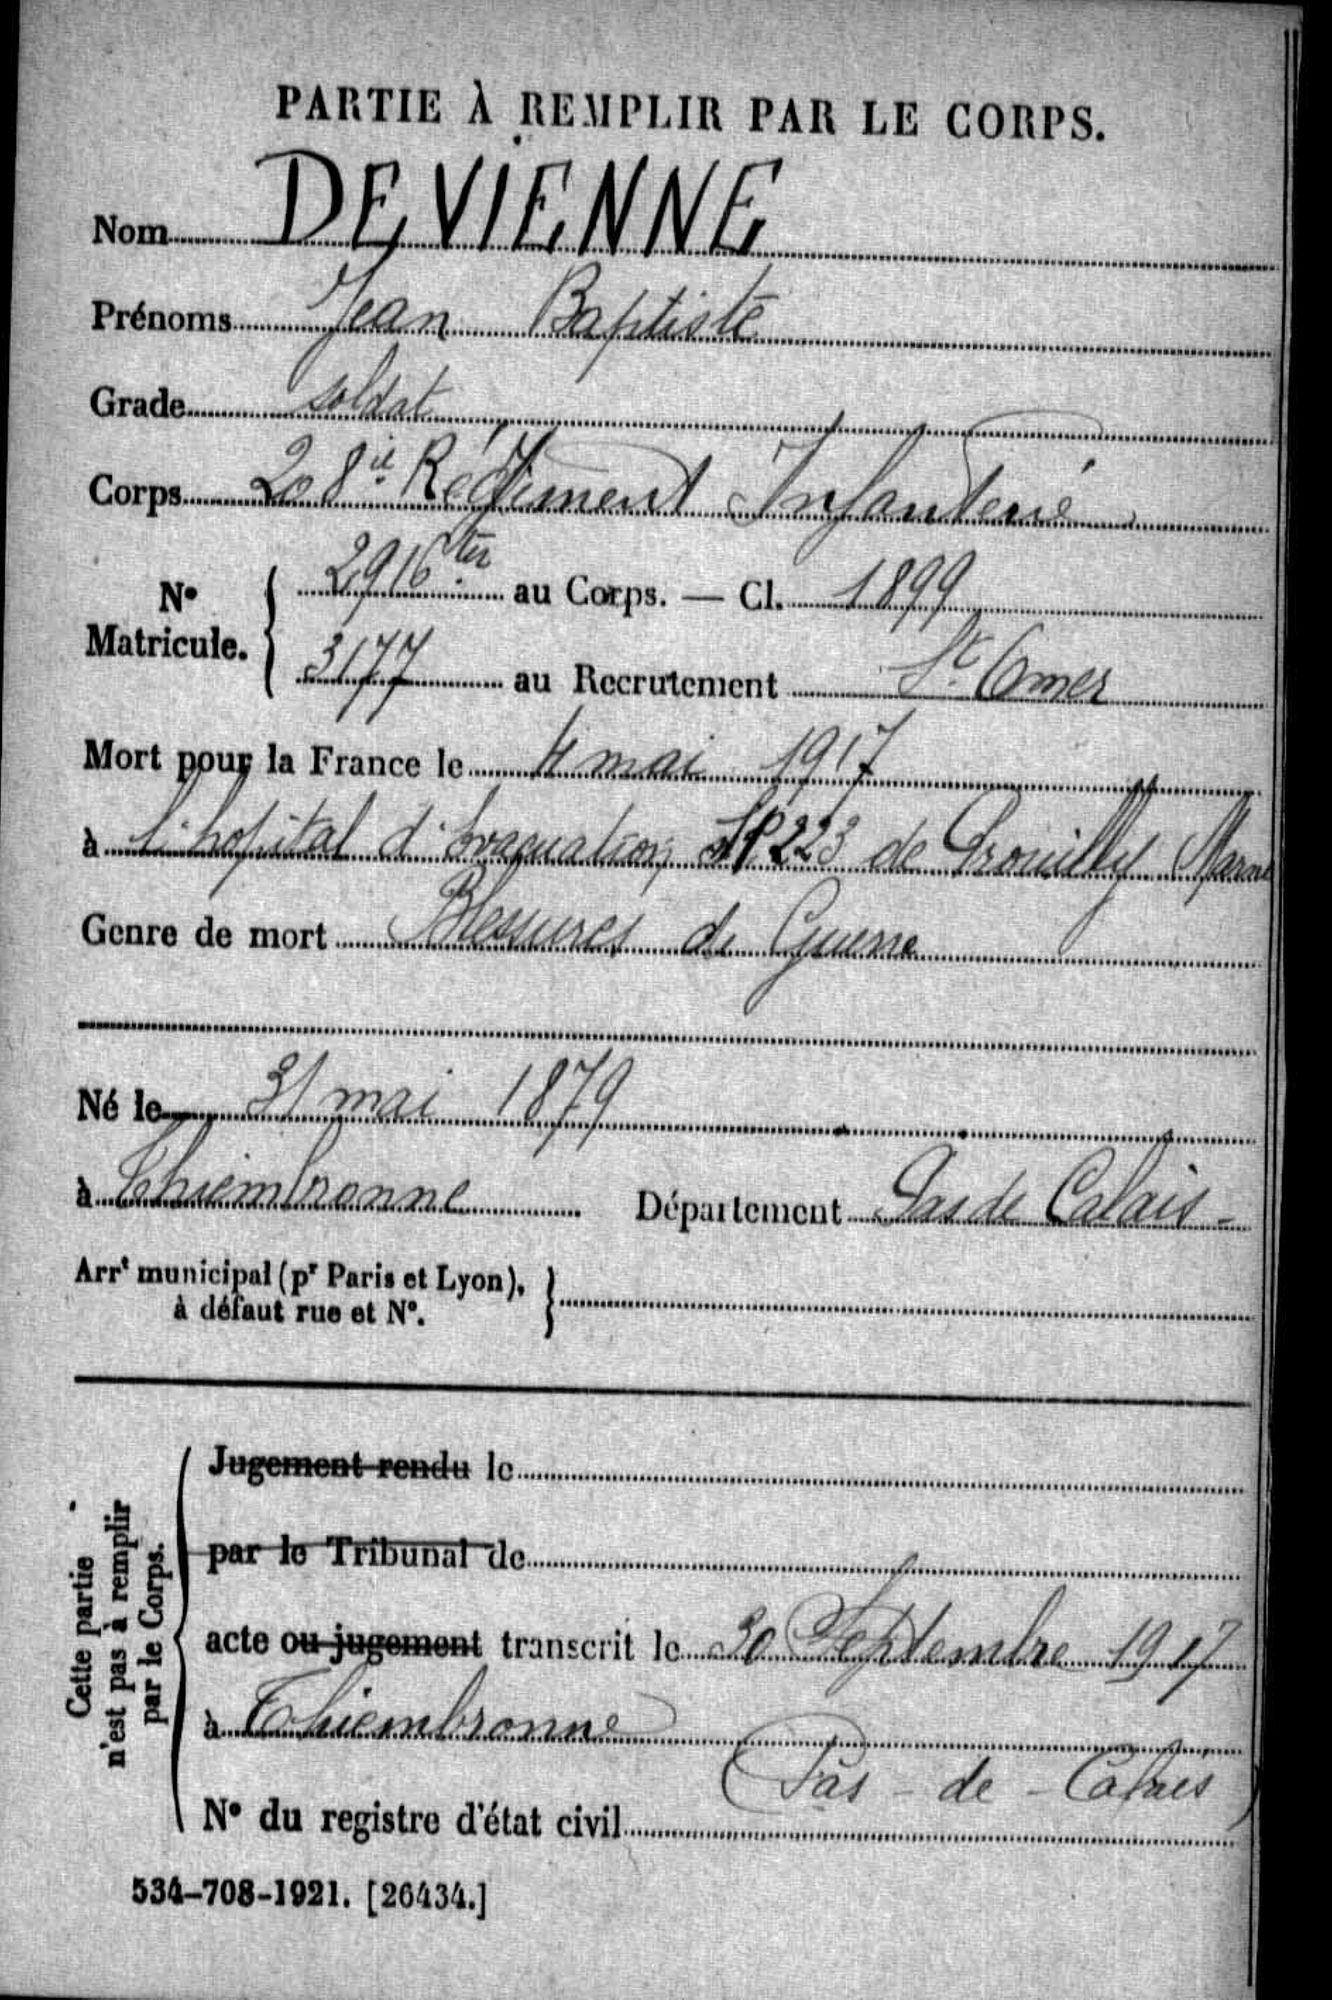 PARTIE À REMPLIR PAR LE CORPS.
Nom DEVIENNE
Prénoms Jean Baptiste
Grade soldat
Corps 208ie Régiment Infanterie
No Matricule. { 2916ter au Corps. — Cl. 1899
3177 au Recrutement St. Omer
Mort pour la France le 4 mai 1917
à l'hopital d'évacuation SP 223 de Prouilly Marne
Genre de mort Blessures de Guerre
Né le 31 mai 1879
à Thiembronne Département Pas de Calais -
Arrt municipal (pr Paris et Lyon), à défaut rue et No. }
Cette partie n'est pas à remplir par le Corps.
Jugement rendu le
par le Tribunal de
acte ou jugement transcrit le 30 Septembre 1917
à Thiembronne
(Pas - de - Calais)
No du registre d'état civil
534-708-1921. [26434.]